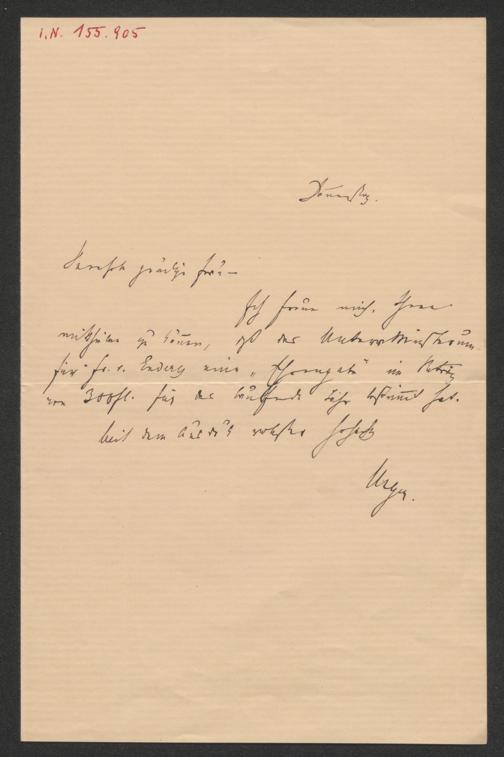 I.N. 155.905
Donnerstag.
Verehrte gnädige Frau –
Ich freue mich, Ihnen
mittheilen zu können, daß das Unterr. Ministerium
für Fr. v. eine „Ehrengabe“ im Betrag
von 300 fl. für das laufende Jahr bestimmt hat.
Mit dem Ausdruck